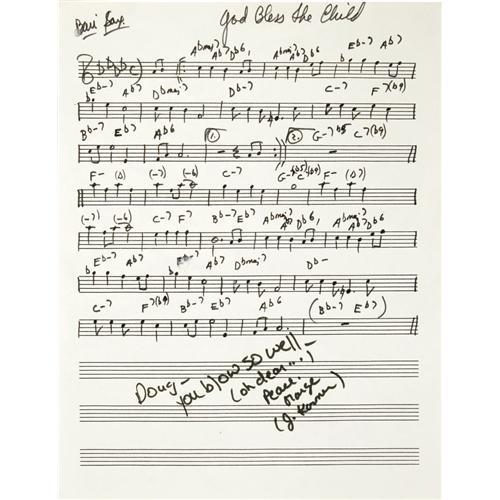 Bari Sax
God Bless the Child
Abmaj7 Ab7 Db6, Abmaj7 Ab7 Db6 Eb-7 Ab7
Eb-7 Ab7 Dbmaj7 Db-7 C-7 F7(b9)
Bb-7 Eb7 Ab6 1. 2. G-7b5 C7(b9)
F- (Δ) (-7) (-6) C-7 F7 Bb-7 Eb7 G-7(b5) C7(b9) F- (Δ7)
(-7) (-6) C-7 F7 Bb-7 Eb7 Abmaj7 Ab7 Db6, Abmaj7 Ab7 Db6
Eb-7 Ab7 Eb-7 Ab7 Dbmaj7 Db-
C-7 F7(b9) Bb-7 Eb7 Ab6 (Bb-7 Eb7)
Doug-
you blow so well-
(oh dear...!)
Peace,
Marge